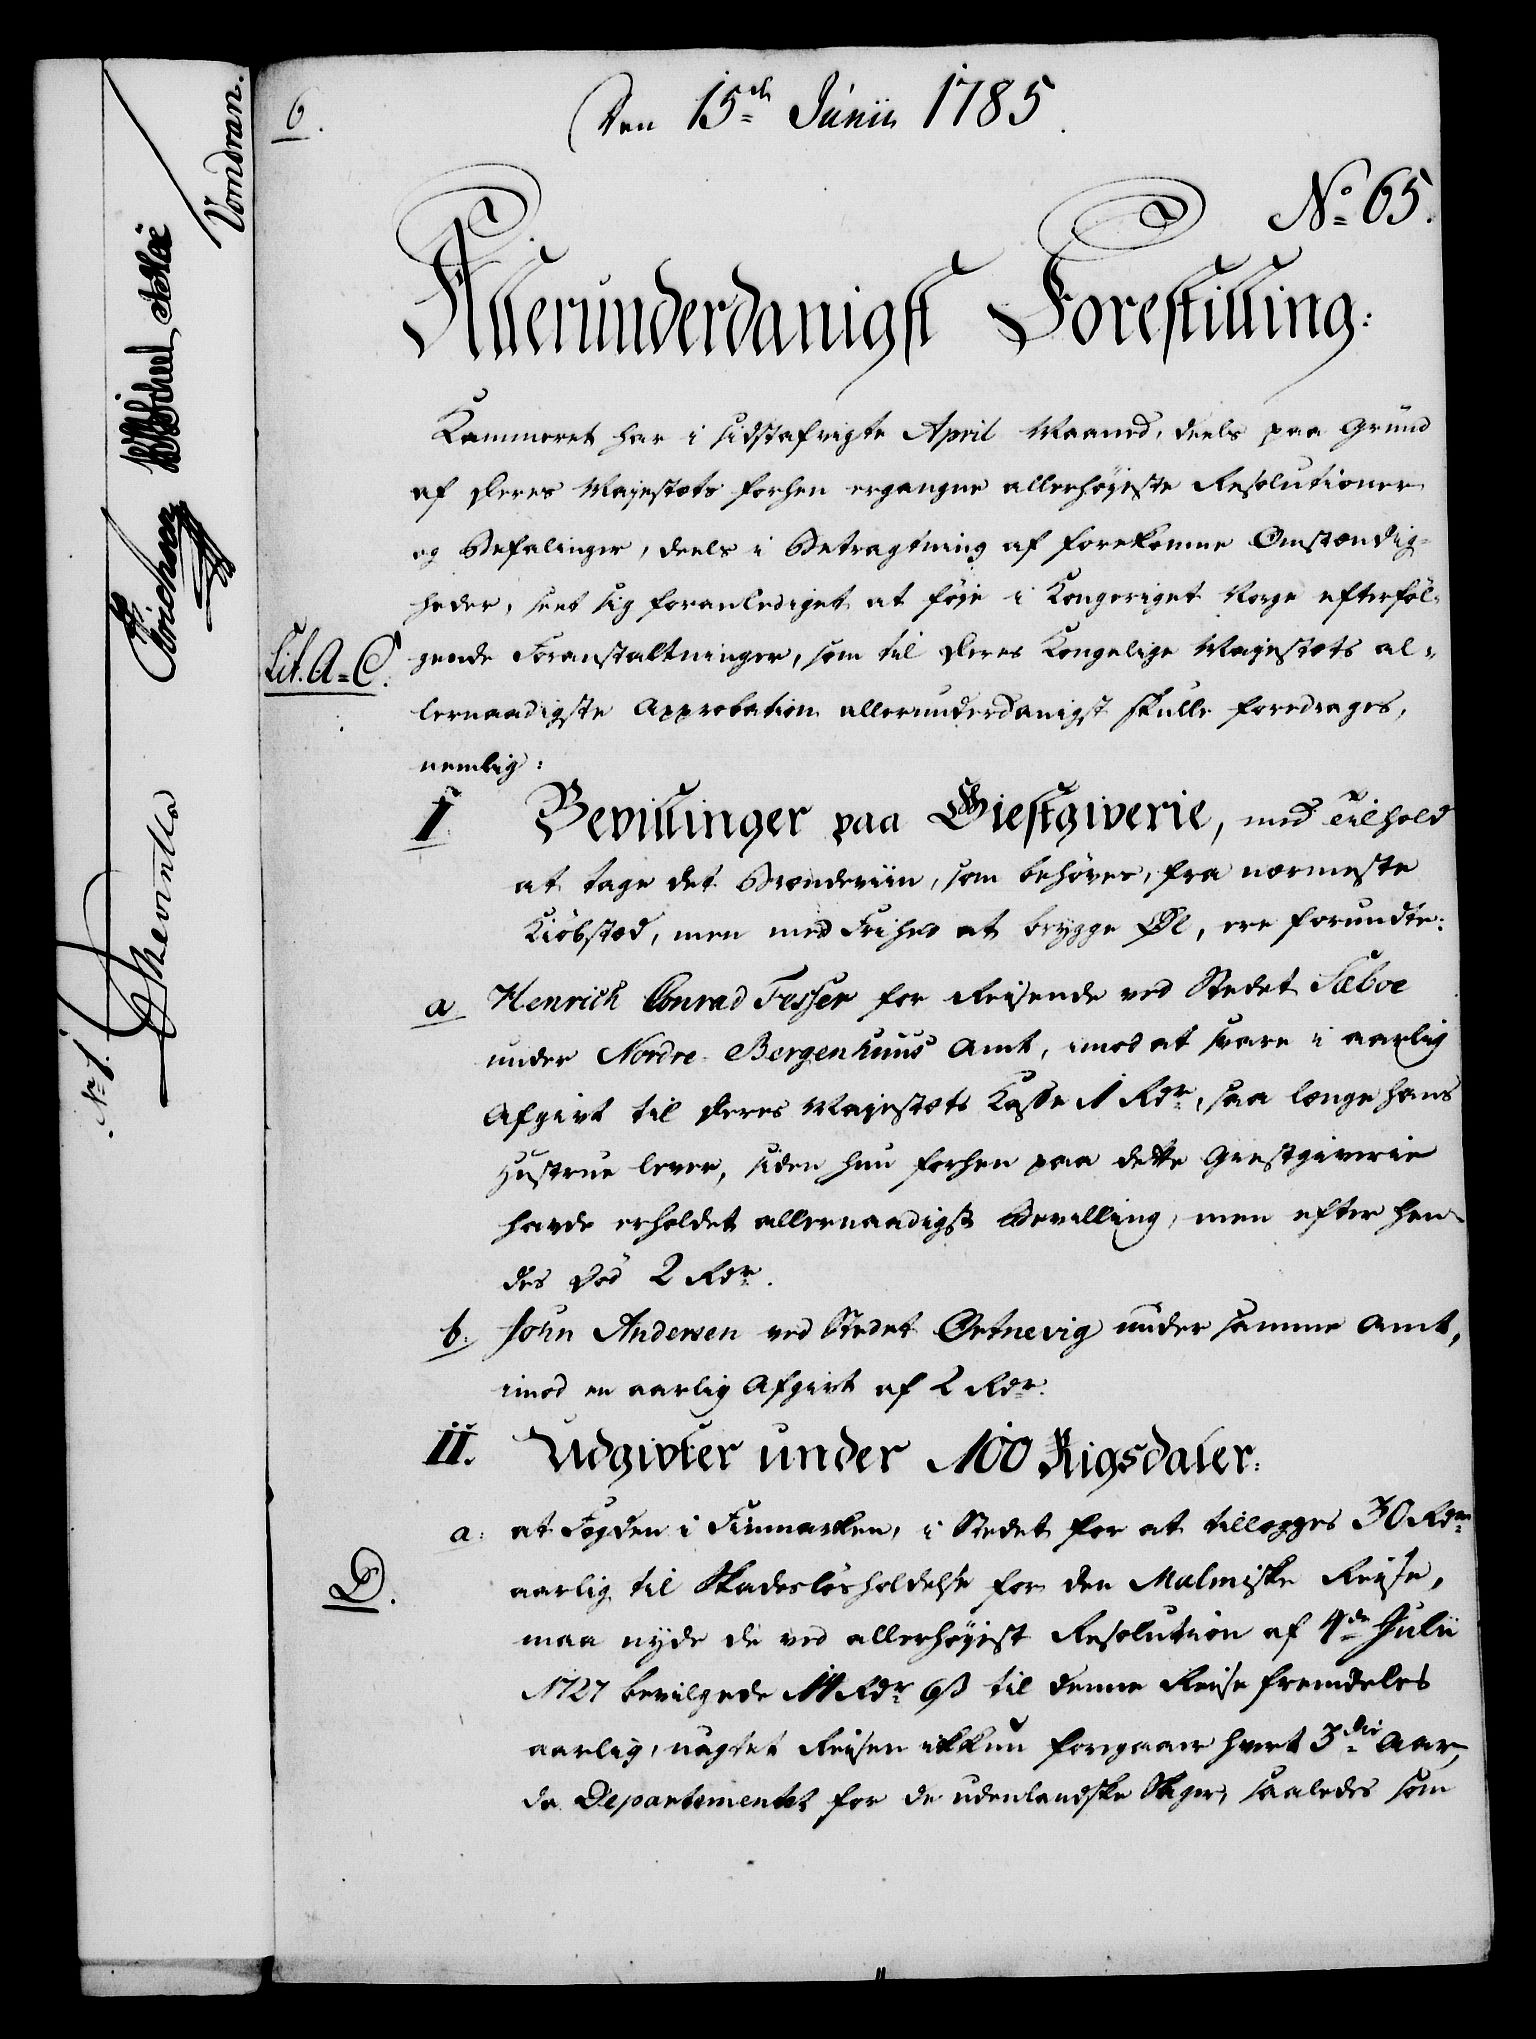 6.
Den 15de Junii 1785.
No 65.
Allerunderdanigst Forestilling:
Kammeret har i sidstafvigte April Maaned, deels paa Grund
af Deres Majestæts forhen ergangne allerhøjeste Resolutioner
og Befalinger, deels i Betragtning af forekomne Omstændig-
heder, seet sig foranlediget at føje i Kongeriget Norge efterføl-
Lit. A-C.
gende Foranstaltninger, som til Deres Kongelige Majestæts al-
lernaadigste Approbation allerunderdanigst skulle foredrages,
nemlig:
I. Bevillinger paa Giestgiverie, med Tilhold
at tage det Brændeviin, som behøves, fra nærmeste
Kiøbstæd, men med Frihed at brygge Øl, ere forundte:
a Henrich Conrad Fesser for Reisende ved Stedet Sæboe
under Nordre Bergenhuus Amt, imod at svare i aarlig
Afgivt til Deres Majestæts Kasse 1 Rdr, saa længe hans
Hustrue lever, siden hun forhen paa dette Giestgiverie
havde erholdet allernaadigst Bevilling, men efter hen-
des Død 2 Rdr.
b. John Andersen ved Stedet Ortnevig under samme Amt,
imod en aarlig Afgivt af 2 Rdr.
II. Udgivter under 100 Rigsdaler:
a. at Fogden i Finmarken, i Stedet for at tillægges 30 Rdr
aarlig til Skadesløsholdelse for den Malmiske Reise,
D.
maa nyde de ved allerhøjest Resolution af 4de Julii
1727 bevilgede 14 Rdr 6 ß til denne Reise fremdeles
aarlig, uagtet Reisen ikkun foregaaer hvert 3die Aar,
da Departementet for de udenlandske Sager, saaledes som
Vondran.
Erichsen
No 1.